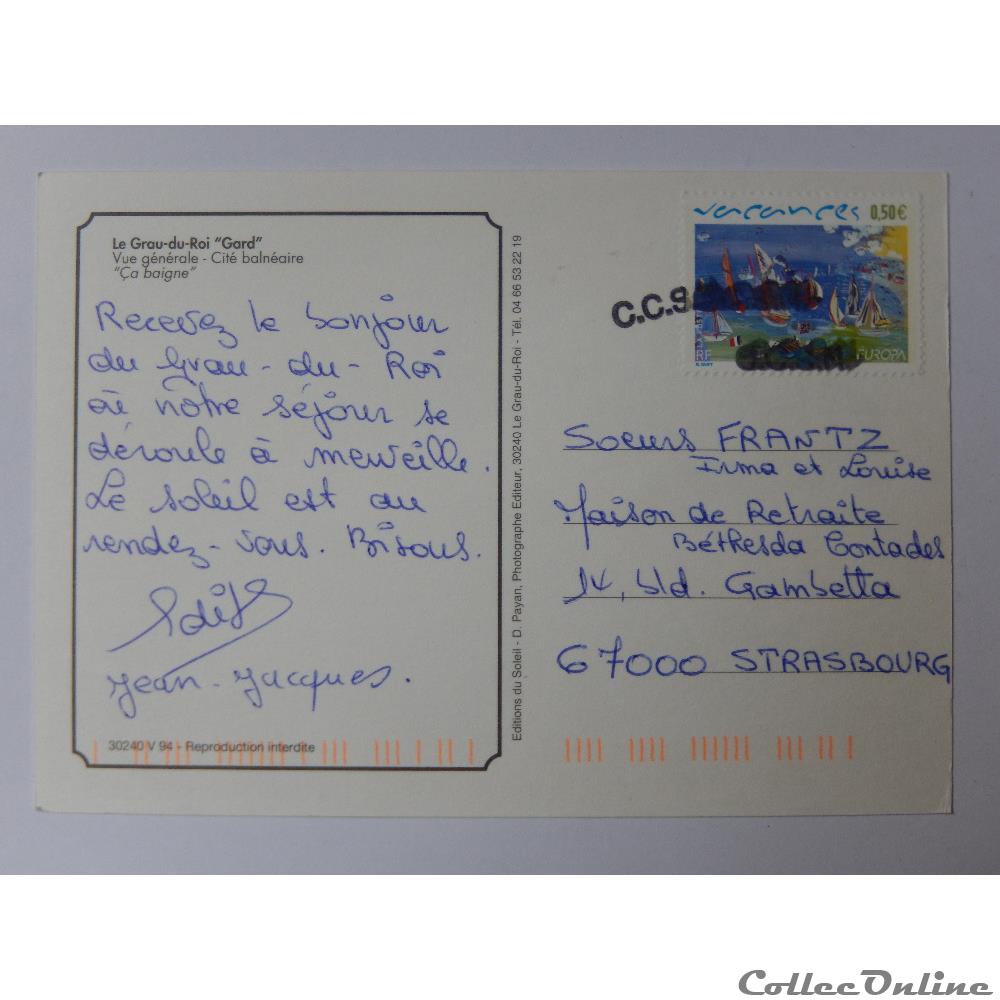 Le Grau-du-Roi "Gard"
Vue générale - Cité balnéaire
"Ça baigne"
Recevez le bonjour
du Grau-du-Roi
où notre séjour se
déroule à merveille.
Le soleil est au
rendez-vous. Bisous.
Edith
Jean-Jacques.
30240 V 94 - Reproduction interdite
Editions du Soleil - D. Payan, Photographe Editeur, 30240 Le Grau-du-Roi - Tél. 04 66 53 22 19
vacances 0,50€
RF
EUROPA
C.C.
Soeurs FRANTZ
Irma et Louise
Maison de Retraite
Béthesda Contades
14, bld. Gambetta
67000 STRASBOURG
CollecOnline